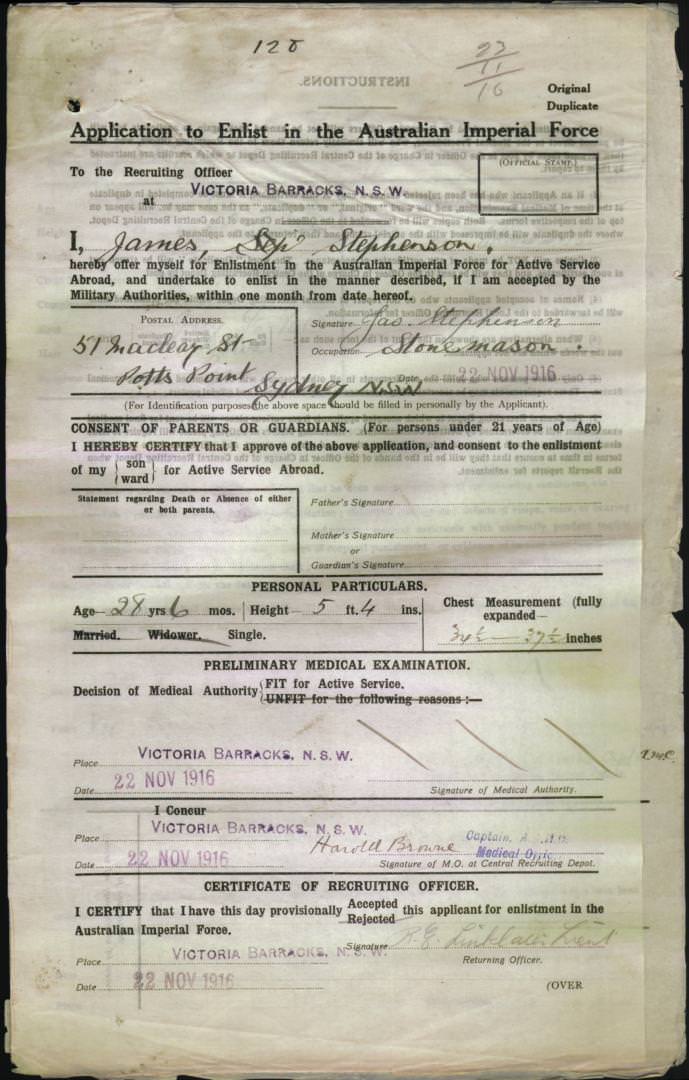 128
23
11
16
INSTRUCTIONS.
Original
Duplicate
Application to Enlist in the Australian Imperial Force
To the Recruiting Officer
at VICTORIA BARRACKS, N.S.W.
(OFFICIAL STAMP.)
I, James, Sep Stephenson.
hereby offer myself for Enlistment in the Australian Imperial Force for Active Service
Abroad, and undertake to enlist in the manner described, if I am accepted by the
Military Authorities, within one month from date hereof.
POSTAL ADDRESS.
51 Macleay St
Potts Point Sydney NSW
Signature Jas. Stephenson
Occupation Stonemason.
Date 22 NOV 1916
(For Identification purposes the above space should be filled in personally by the Applicant).
CONSENT OF PARENTS OR GUARDIANS. (For persons under 21 years of Age)
I HEREBY CERTIFY that I approve of the above application, and consent to the enlistment
of my { son ward } for Active Service Abroad.
Statement regarding Death or Absence of either
or both parents.
Father's Signature
Mother's Signature
or
Guardian's Signature
PERSONAL PARTICULARS.
Age 28 yrs 6 mos. Height 5 ft. 4 ins.
Chest Measurement (fully
expanded—
34½ — 37½ inches
Married. Widower. Single.
PRELIMINARY MEDICAL EXAMINATION.
Decision of Medical Authority { FIT for Active Service.
UNFIT for the following reasons :—
Place VICTORIA BARRACKS, N.S.W.
Date 22 NOV 1916
Signature of Medical Authority.
I Concur
Place VICTORIA BARRACKS, N.S.W.
Date 22 NOV 1916
Harold Browne Captain, A
Medical Offic
Signature of M.O. at Central Recruiting Depot.
CERTIFICATE OF RECRUITING OFFICER.
I CERTIFY that I have this day provisionally Accepted Rejected this applicant for enlistment in the
Australian Imperial Force.
Signature R. E. Linklater Lieut
Place VICTORIA BARRACKS, N.S.W.
Returning Officer.
Date 22 NOV 1916
(OVER